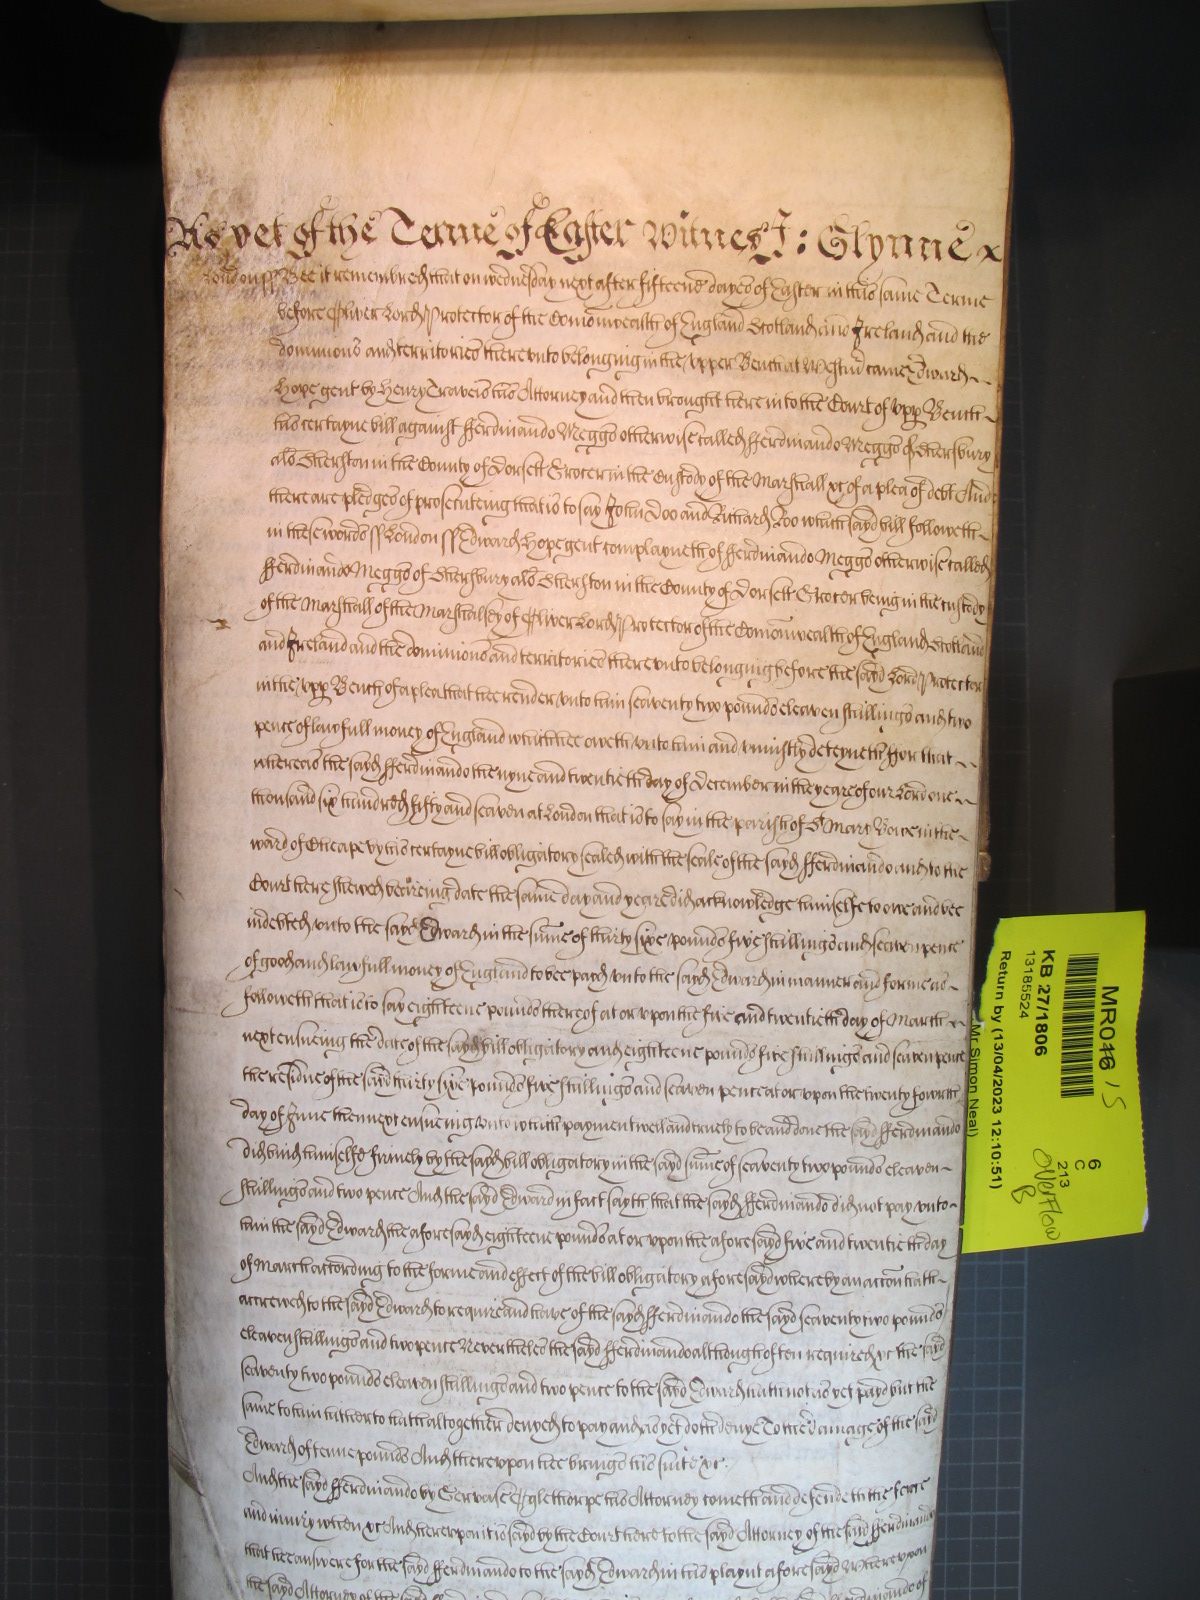 As yet of the Terme of Easter Witnes J: Glynne x
London ss Bee it remembred that on wednesday next after fifteene dayes of Easter in this same Terme
before Oliver Lord Protector of the Comonwealth of England Scotland and Ireland and the
dominions and territories thereunto belonging in the upper Bench at Westm came Edward
Hope gent by Henry Travers his Attorney and then brought here into the Court of upp Bench
his certayne bill against fferdinando Meggs otherwise called fferdinando Meggs of
als in the County of Dorsett Grocer in the Custody of the Marshall &c of a plea of debt And
there are pledges of prosecuteing that is to say John Doo and Richard Roo which sayd bill followeth
in these words ss London ss Edward Hope gent complayneth of fferdinando Meggs otherwise called
fferdinando Meggs of als in the County of Dorsett Grocer being in the custody
of the Marshall of the Marshalsey of Oliver Lord Protector of the Comonwealth of England Scotland
and Ireland and the dominions and territories thereunto belonging before the sayd Lord Protector
in the upp Bench of a plea that hee render unto him seaventy two pounds eleaven shillings and two
pence of lawfull money of England which hee oweth unto him and uniustly deteyneth ffor that
whereas the sayd fferdinando the nyne and twentieth day of December in the yeare of our Lord one
thousand six hundred fifty and seaven at London that is to say in the parish of St Mary Bowe in the
ward of Cheape by his certayne bill obligatory sealed with the seale of the sayd fferdinando and to the
Court here shewed beareing date the same day and yeare did acknowledge himselfe to owe and bee
indebted unto the sayd Edward in the sume of thirty sixe pounds five shillings and seaven pence
of good and lawfull money of England to bee payd unto the sayd Edward in manner and forme as
followeth that is to say eighteene pounds thereof at or upon the five and twentieth day of March
next ensueing the date of the sayd bill obligatory and eighteene pounds five shillings and seaven pence
the residue of the said thirty sixe pounds five shillings and seaven pence at or upon the twenty fowrth
day of June then next ensueing unto which payment well and truely to be and done the said fferdinando
did bind himselfe firmely by the sayd bill obligatory in the sayd sume of seaventy two pounds eleaven
shillings and two pence And the sayd Edward in fact sayth that the sayd fferdinando did not pay unto
him the sayd Edward the aforesayd eighteene pounds at or upon the aforesayd five and twentieth day
of March according to the forme and effect of the bill obligatory aforesayd whereby an accon hath
accrewed to the sayd Edward to require and have of the sayd fferdinando the sayd seaventy two pounds
eleaven shillings and two pence Neverthelesse the sayd fferdinando although often required &c the sayd
seaventy two pounds eleaven shillings and two pence to the sayd Edward hath not as yet payd but the
same to him hitherto hath altogether denyed to pay and as yet doth denye To the damage of the said
Edward of tenne pounds And thereupon hee brings his suite &c.
And the sayd fferdinando by Gervase Oglethorpe his Attorney cometh and defendeth the force
and iniury when &c And hereupon it is sayd by the Court here to the sayd Attorney of the said fferdinando
that hee answere for the sayd fferdinando to the sayd Edward in his playnt aforesayd Whereupon
the sayd Attorney of the sayd fferdinando of
MR046 / 5
KB 27/1806
13185524
Return by (13/04/2023 12:10:51)
Mr Simon Neal)
6
C
213
overflow
B